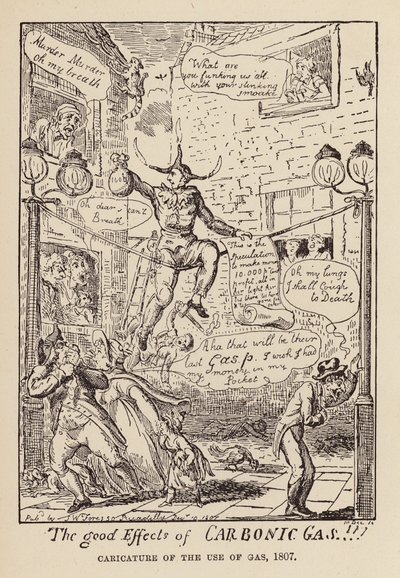 Murder Murder
oh my breath
What are
you funking us all
with your stinking
smoake
Oh dear can't
Breath
This is the
Speculation
to make
10.000
profit all in
Oh my lungs
I shall Cough
to Death
Aha that will be their
last Gasp. I wish I had
my money in my
Pocket
Pubd by S W Fores 50 Piccadilly Decr 10 1807
The good Effects of CARBONIC GAS!!!
CARICATURE OF THE USE OF GAS, 1807.